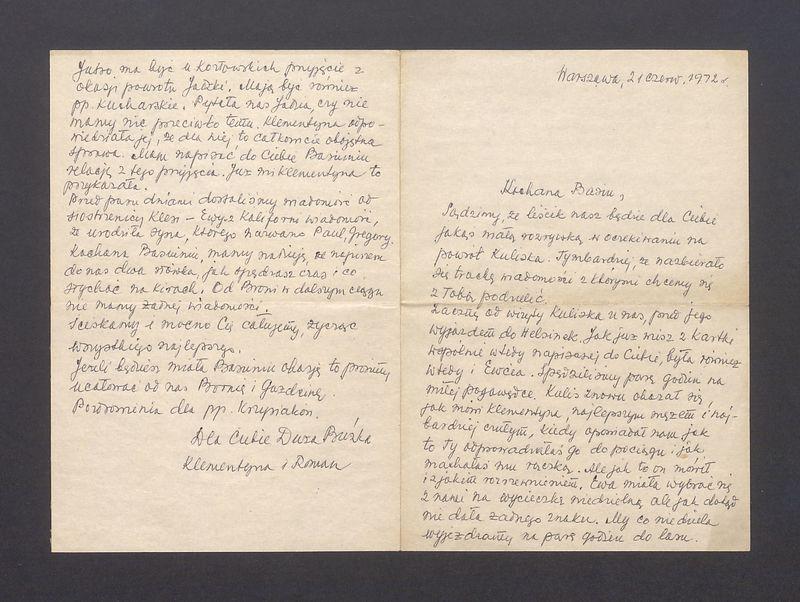 Warszawa, 21 czerw. 1972 r
Kochana Basiu,
Sądzimy, że liścik nasz będzie dla Ciebie
jakąś małą rozrywką w oczekiwaniu na
powrót Kuliska. Tymbardziej, że nazbierało
się trochę wiadomości z którymi chcemy się
z Tobą podzielić.
Zacznę od wizyty Kuliska u nas, przed jego
wyjazdem do Helsinek. Jak już wiesz z kartki
wspólnie wtedy napisanej do Ciebie, była również
wtedy i Ewcia. Spędziliśmy parę godzin na
miłej pogawędce. Kulis znowu okazał się,
jak mówi Klementyna, najlepszym mężem i naj-
bardziej czułym, kiedy opowiadał nam jak
to Ty odprowadzałaś go do pociągu i jak
machałaś mu rączką. Ale jak to on mówił
i z jakim rozrzewnieniem. Ewa miała wybrać się
z nami na wycieczkę niedzielną ale jak dotąd
nie dała żadnego znaku. My co niedziela
wyjeżdżamy na parę godzin do lasu.
Jutro ma być u Kozłowskich przyjęcie z
okazji powrotu Jadzki. Mają być również
pp. Kucharskie. Pytała nas Jadzia, czy nie
mamy nic przeciwko temu. Klementyna odpo-
wiedziała jej, że dla niej to całkowicie obojętna
sprawa. Mam napisać do Ciebie Basiuniu
relację z tego przyjęcia. Już mi Klementyna to
przykazała.
Przed paru dniami dostaliśmy wiadomość od
siostrzenicy Klem – Ewy z Kaliforni wiadomość,
że urodziła syna, którego nazwano Paul, Gregory.
Kochana Basiuniu, mamy nadzieję, że napiszesz
do nas dwa słówka, jak spędzasz czas i co
słychać na Kirach. Od Broni w dalszym ciągu
nie mamy żadnej wiadomości.
Ściskamy i mocno Cię całujemy, życząc
wszystkiego najlepszego.
Jeżeli będziesz miała Basiuniu okazję to prosimy
ucałować od nas Bornię i Gaździnę.
Pozdrowienia dla pp. Krzysiaków.
Dla Ciebie Duża Buźka
Klementyna i Roman